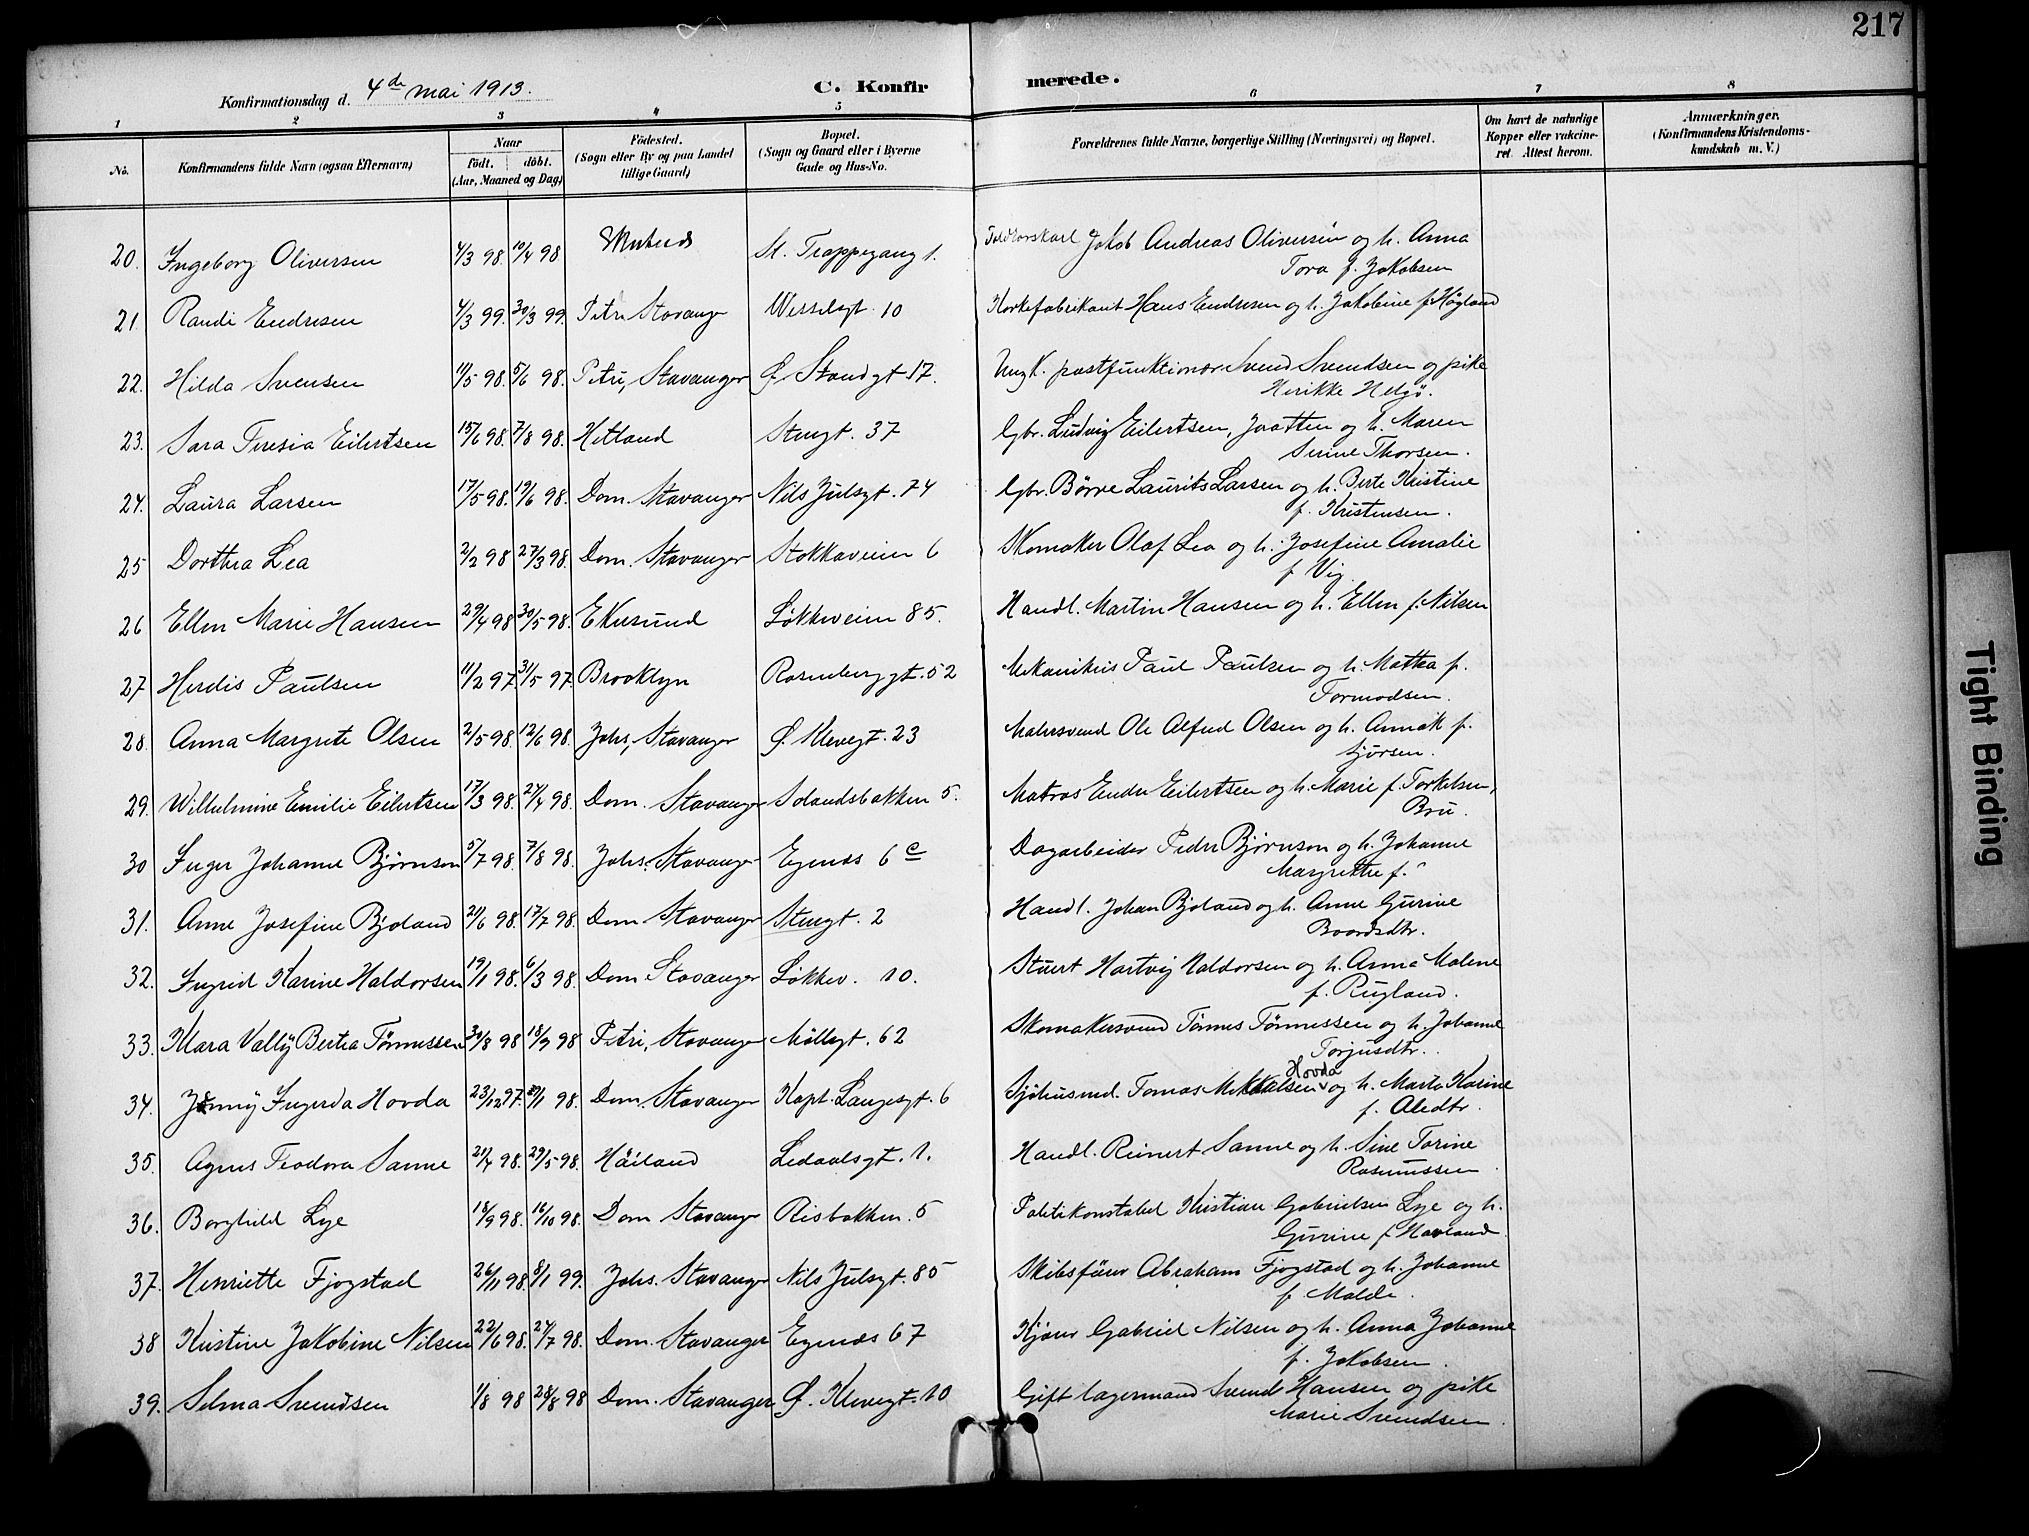 217
Konfirmationsdag d. 4de mai 1913.
C. Konfirmerede.
1 2 3 4 5 6 7 8
No.
Konfirmandens fulde Navn (ogsaa Efternavn)
Naar
Födt. döbt.
(Aar, Maaned og Dag)
Födested.
(Sogn eller By og paa Landet
tillige Gaard)
Bopæl.
(Sogn og Gaard eller i Byerne
Gade og Hus-No.
Forældrenes fulde Navne, borgerlige Stilling (Næringsvei) og Bopæl.
Om havt de naturlige
Kopper eller vakcine-
ret. Attest herom.
Anmærkninger.
(Konfirmandens Kristendoms-
kundskab m. V.)
20. Ingeborg Oliversen 4/3 98. 10/4 98 St. Trappegang 1. Jakob Andreas Oliversen og h. Anna
Tora f. Jakobsen
21. Randi Endresen 4/3 99. 30/3 99. Petri Stavanger Wesselsgt. 10 Korkefabrikant Hans Endresen og h. Jakobine f. Högland
22. Hilda Svensen 11/5 98. 5/6 98. Petri, Stavanger Ø. Strandgt 17. Ungk. postfunktionær Svend Svendsen og pike
Henrikke Helgö.
23. Sara Teresia Eilertsen 15/6 98. 7/8 98. Hetland Stengt. 37 Gbr. Ludvig Eilertsen, Jaatten og h. Maren
Serine Thorsen.
24. Laura Larsen 17/5 98. 19/6 98. Dom. Stavanger Nils Julsgt. 74 Gbr. Börre Laurits Larsen og h. Berte Kristine
f. Kristensen.
25 Dorthea Lea 2/2 98 27/3 98. Dom. Stavanger Stokkaveien 6 Skomaker Olaf Lea og h. Josefine Amalie
f. Vig.
26 Ellen Marie Hansen 29/4 98 30/5 98. Ekersund Løkkeveien 85. Handl. Martin Hansen og h. Ellen f. Nilsen
27 Herdis Paulsen 11/2 97. 31/5 97. Brooklyn Rosenberggt. 52 Mekanikus Paul Paulsen og h. Mathea f.
Tormodsen.
28. Anna Margrete Olsen 2/5 98. 12/6 98. Johs, Stavanger Ø. Klevegt. 23 Malersvend Ole Alfred Olsen og h. Annah f.
Sjursen.
29. Wilhelmine Emilie Eilertsen 17/3 98. 24/4 98. Dom. Stavanger Solandsbakken 5. Matros Endre Eilertsen og h. Marie f. Torkelsen,
Bru.
30 Inger Johanne Bjørnson 5/7 98. 7/8 98. Johs. Stavanger Egenes 6 c Dagarbeider Peder Bjørnson og h. Johanne
Margrethe f.
31. Anne Josefine Bjoland 21/6 98. 17/7 98. Dom Stavanger Stengt. 2 Handl. Johan Bjoland og h. Anne Gurine
Baardsdtr.
32. Ingrid Karine Haldorsen 19/1 98. 6/3 98. Dom Stavanger Løkkev. 10. Stuert Hartvig Haldorsen og h. Anna Malene
f. Rugland.
33. Klara Vally Bertea Tönnessen 30/8 98 18/9 98 Petri, Stavanger Möllegt. 62 Skomakersvend Tönnes Tönnessen og h. Johanne
Torjusdtr.
34. Jenny Ingerda Hovda 23/12 97. Dom. Stavanger Kapt. Langesgt. 6 Sjöhusmed. Tomas Mikkalsen Hovda og h. Marta Karine
f. Aledtr.
35. Agnes Teodora Sanne 21/4 98. 29/5 98. Håiland Ledaalsgt. 1. Handl. Reinert Sanne og h. Sine Torine
Rasmussen
36. Borghild Lye 18/9 98. 16/10 98. Dom Stavanger Risbakken. 5 Politikonstabel Kristian Gabrielsen Lye og h.
Gurine f. Havland
37. Henriette Fjogstad 26/11 98. 8/1 99. Johs. Stavanger Nils Julsgt. 85 Skibsförer Abraham Fjogstad og h. Johanne
f. Malde.
38 Kristine Jakobine Nilsen 22/6 98. 24/7 98. Dom. Stavanger Egenes 67 Kjörer Gabriel Nilsen og h. Anna Johanne
f. Jakobsen
39. Selma Svendsen 1/8 98 28/8 98 Dom. Stavanger Ø. Klevegt. 10 Gift lagermand Svend Hansen og pike
Marie Svendsen
Tight Binding